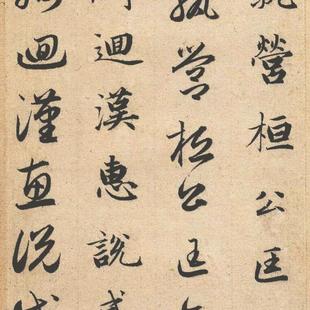 孰營桓公匡
孰營桓公匡
迴漢惠說感
綺迴漢惠說感